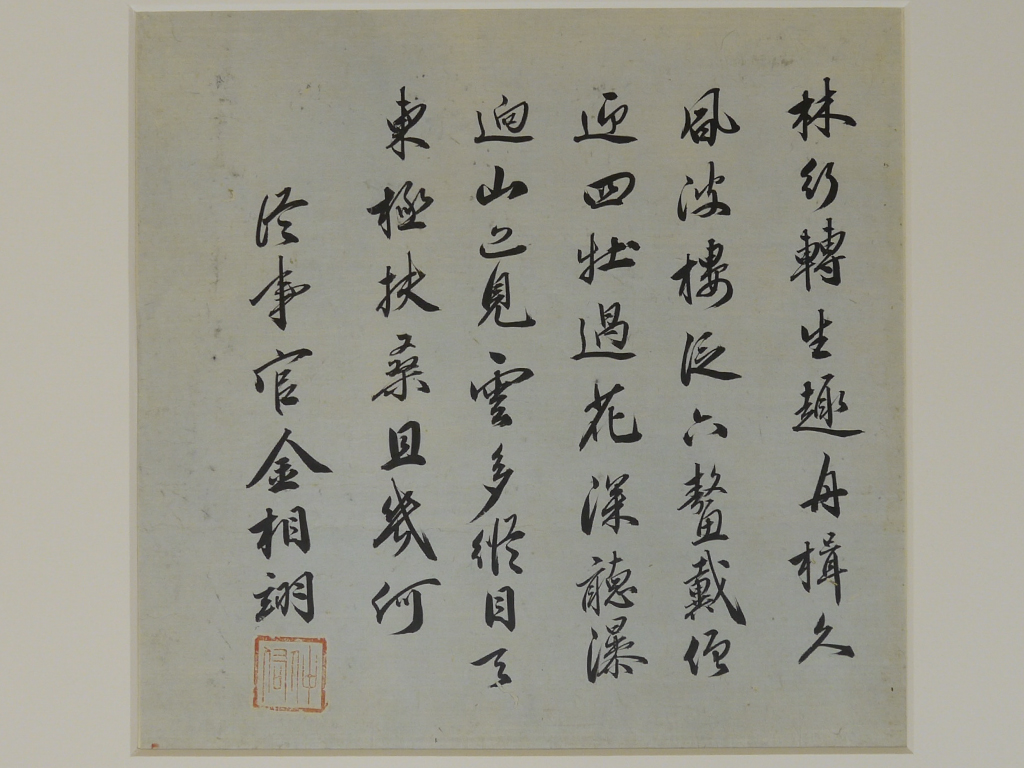 林行轉生趣舟楫久
風波樓泛六鰲戴僧
迎四牡過花深聽瀑
逈山已見雲多縱目天
東極扶桑且幾何
從事官金相翊